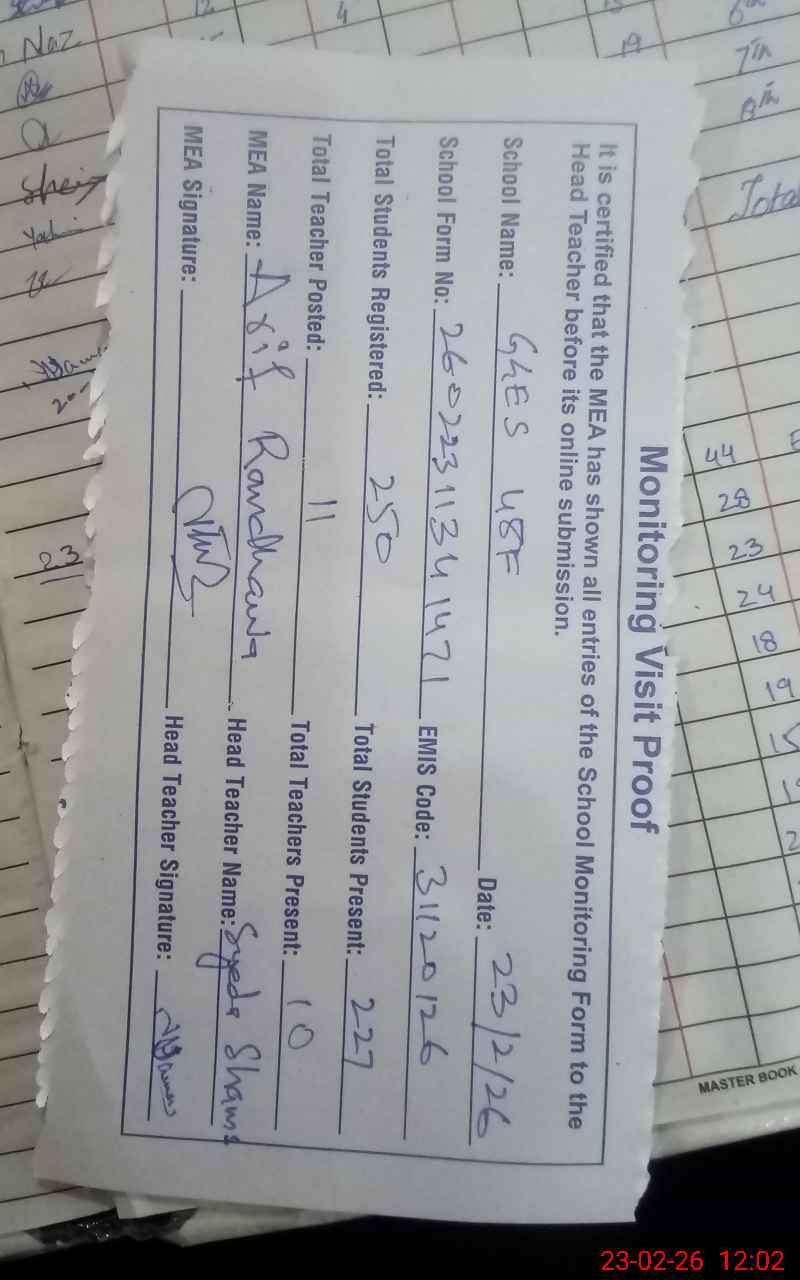 Monitoring Visit Proof
It is certified that the MEA has shown all entries of the School Monitoring Form to the
Head Teacher before its online submission.
School Name: GGES 48F Date: 23/2/26
School Form No: 260223113411471 EMIS Code: 31120126
Total Students Registered: 250 Total Students Present: 227
Total Teacher Posted: 11 Total Teachers Present: 10
MEA Name: Arif Randhawa Head Teacher Name: Syeda Shams
MEA Signature: Head Teacher Signature:
Naz
12
4
6th
7th
8th
Total
44
28
23
24
18
19
23
MASTER BOOK
23-02-26 12:02